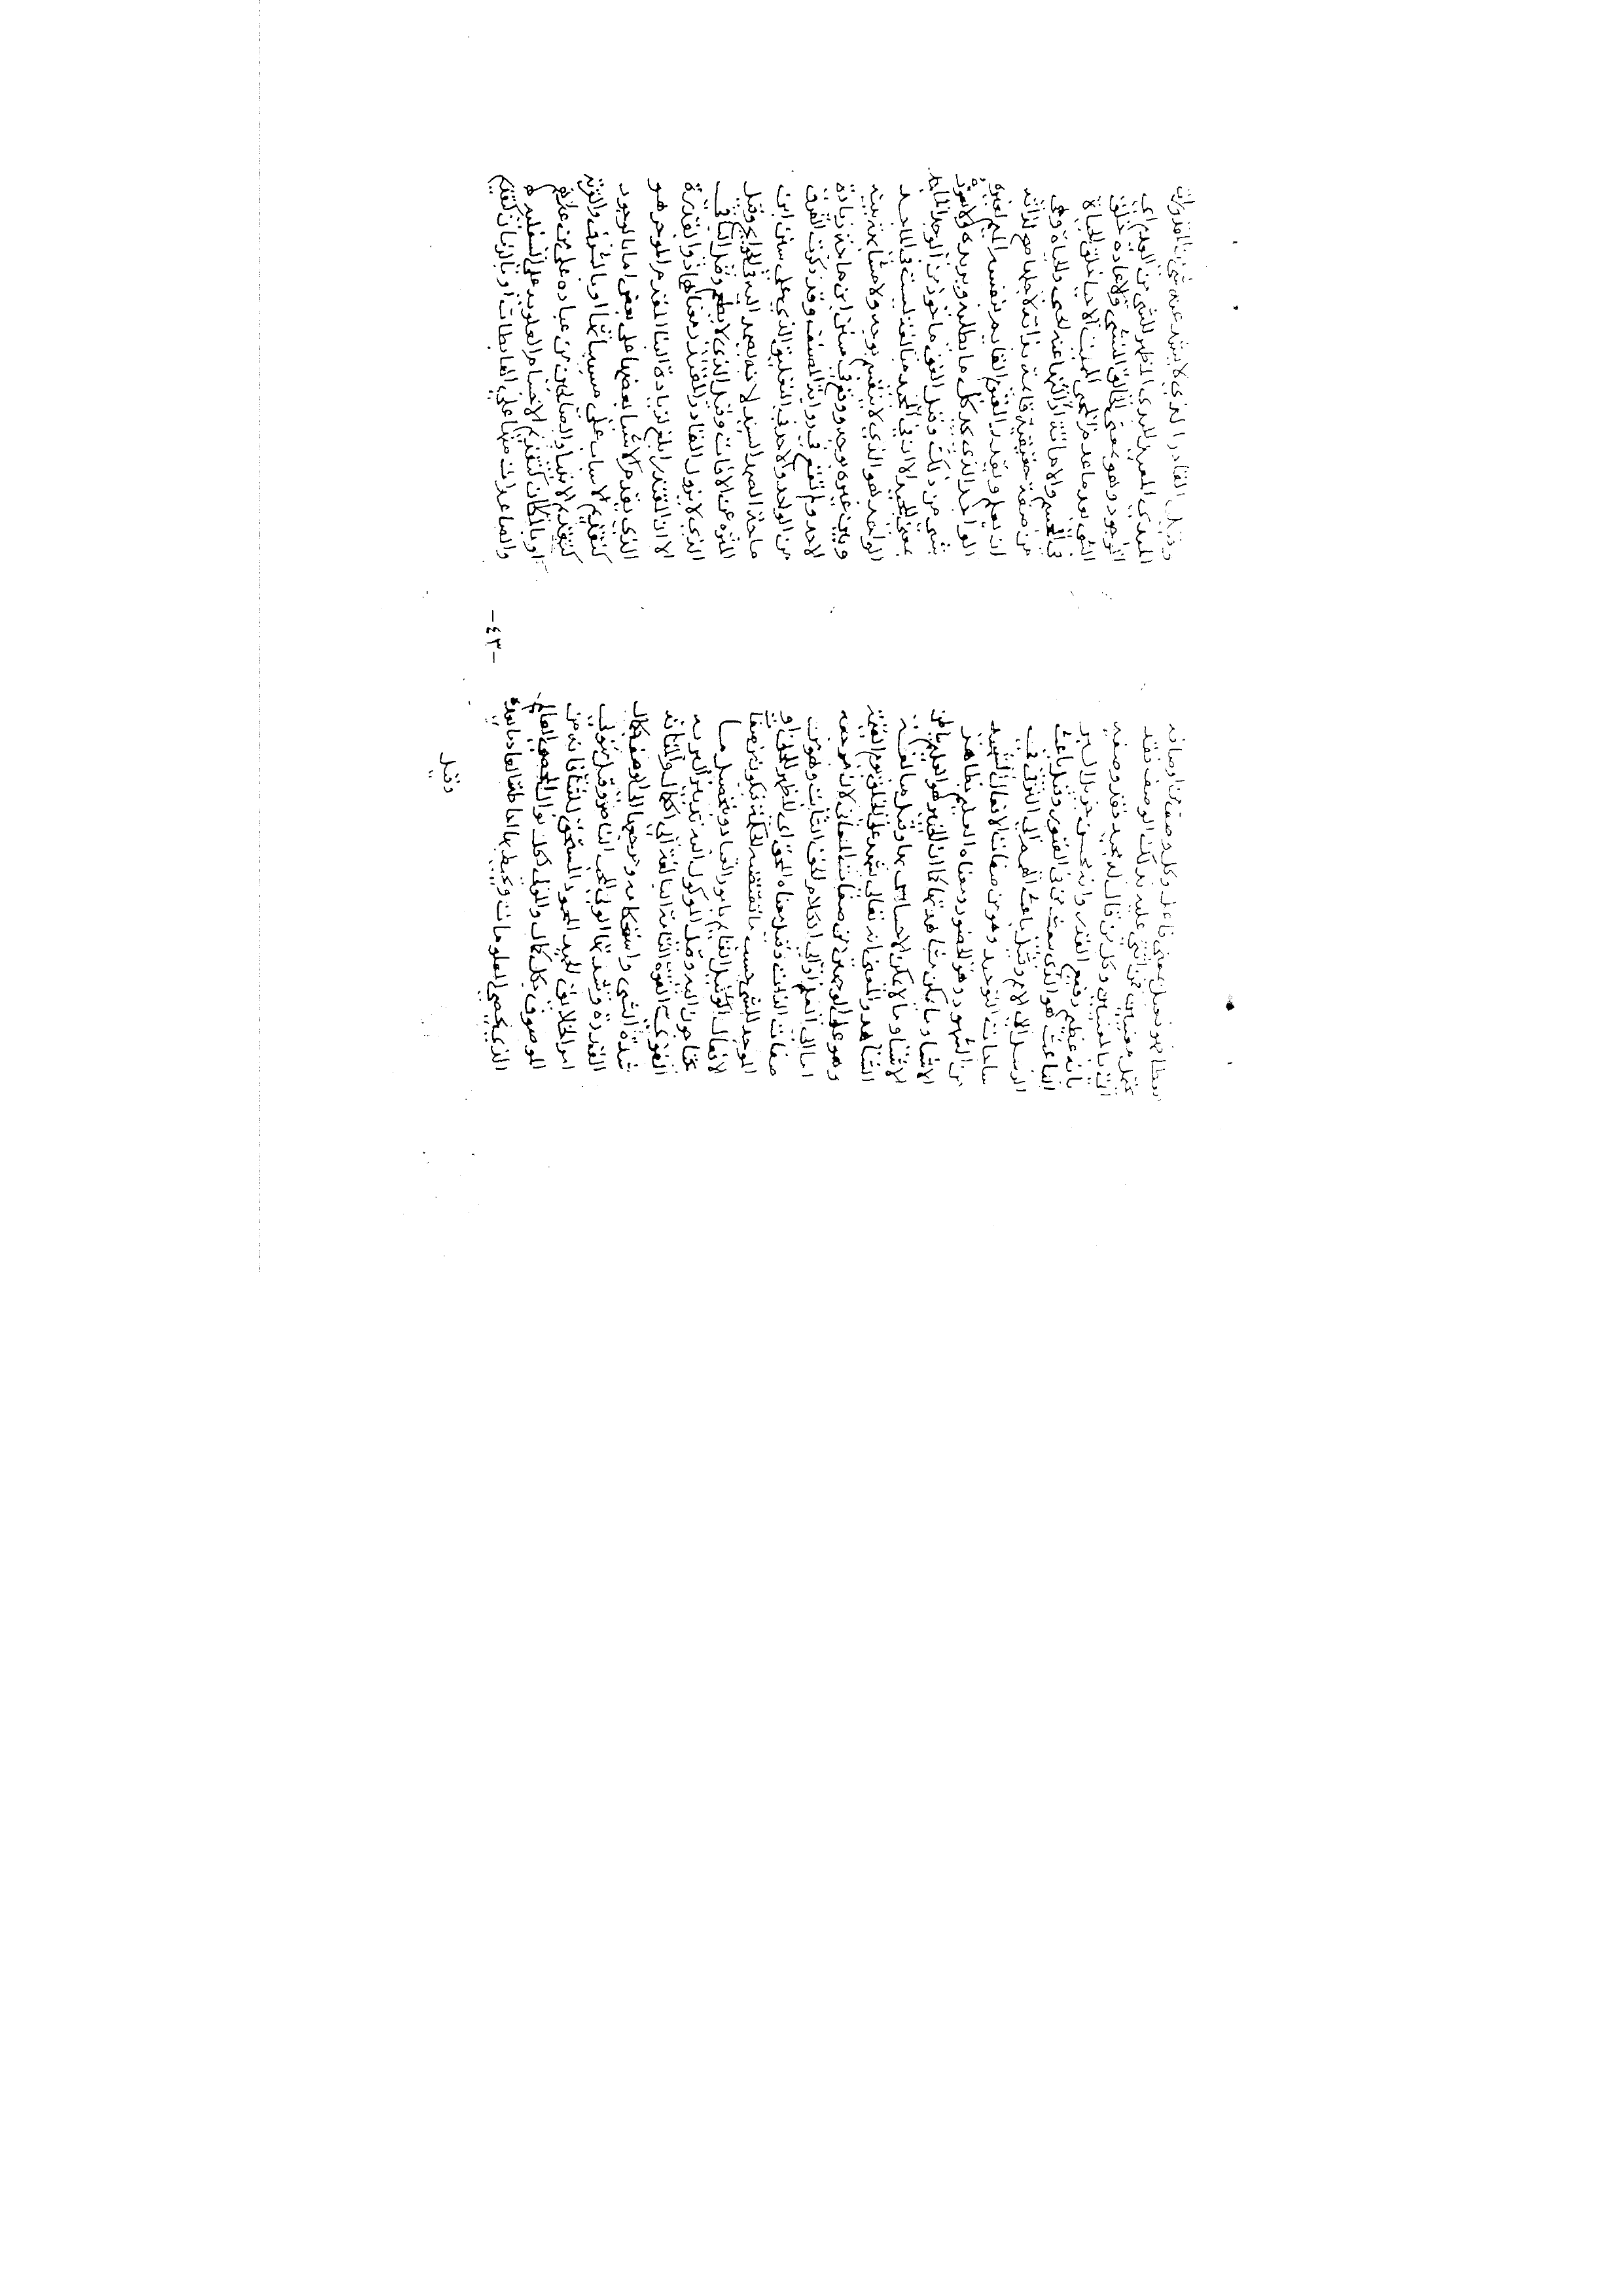 فهو فعيل بمعنى فاعل وكل وصف من اوصافه
يحتمل معنيين فمن اثنى عليه بذلك الوصف فقد
اتى بالمعنيين وكل من قال له مجيد فقد وصفه
بانه عظيم رفيع القدر وانه محسن جزيل البر
الباعث هو الذي يبعث من في القبور وقيل باعث
الرسل الى الامم وقيل باعث الهمم الى الترقي في
ساحات التوحيد وهو من صفات الافعال الشهيد
من الشهود وهو الحضور ومعناه العليم بظاهر
الاشياء وما يمكن مشاهدتها كما ان الخبير هو العليم بباطن
الاشياء وما لا يمكن الاحساس بها وقيل مبالغة
الشاهد والمعنى انه تعالى يشهد على الخلق يوم القيمة
وهو على الوجهين من صفات المعاني لان مرجعه
اما الى العلم او الى الكلام الحق الثابت وهو من
صفات الذات وقيل معناه المحق اي المظهر للحق او
الموجد للشي حسب ما تقتضيه الحكمة فيكون من صفات
الافعال الوكيل القائم بامور العباد وبتحصيل ما
يحتاجون اليه وقيل الموكول اليه تدبير البريه
القوي القوة التامة البالغة الى الكمال والمتانة
شدة الشي واستحكامه ومرجعها الى الوصف بكمال
القدرة وشدتها الولي المحب الناصر وقيل متولي
امر الخلائق الحميد المحمود المستحق للثنا فانه
الموصوف بكل كمال والمولى لكل نوال المحصي العالم
الذي يحصي المعلومات ويحيط بها احاطة العاد بما يعده
وقيل
-٤٣-
وقيل القادر الذي لا يشذ عنه شي من المقدورات
المبدي المعيد المبدي المظهر للشي من العدم الى
الوجود وهو بمعنى الخالق المنشي والاعادة خلق
الشي بعد ما عدم المحيي المميت الاحيا خلق الحياة
في الجسم والاماتة ازالتها عنه الحي ذو الحياة وهي
من صفة حقيقية قائمة بذاته لاجلها صح لذاته
ان يعلم ويقدر القيوم القائم بنفسه المقيم لغيره
الواجد الذي يجد كل ما يطلبه ويريده ولا يعوزه
شي من ذلك وقيل الغني ماخوذ من الوجد الماجد
بمعنى المجيد الا ان في المجيد مبالغة ليست في الماجد
الواحد هو الذي لا ينقسم بوجه ولا مشابهة بينه
وبين غيره بوجه ووقع في سنن ابن ماجة زيادة
الاحد ولم تقع في رواية المصنف وقد ذكرت الفرق
بين الواحد والاحد في التعليق الذي على سنن ابن
ماجة الصمد السيد لانه يصمد اليه في الحوائج وقيل
المنزه عن الافات وقيل الذي لا يطعم وقيل الباقي
الذي لا يزول القادر المقتدر معناهما ذو القدرة
الا ان المقتدر ابلغ لزيادة البنا المقدم المؤخر هو
الذي يقدم الاشيا بعضها على بعض اما بالوجود
كتقديم الاسباب على مسبباتها او بالشرف والقربة
كتقديم الانبيا والصالحين من عباده على من عداهم
او بالمكان كتقديم الاجسام العلوية على السفليه
والصاعدات منها على الهابطات او بالزمان كتقديم